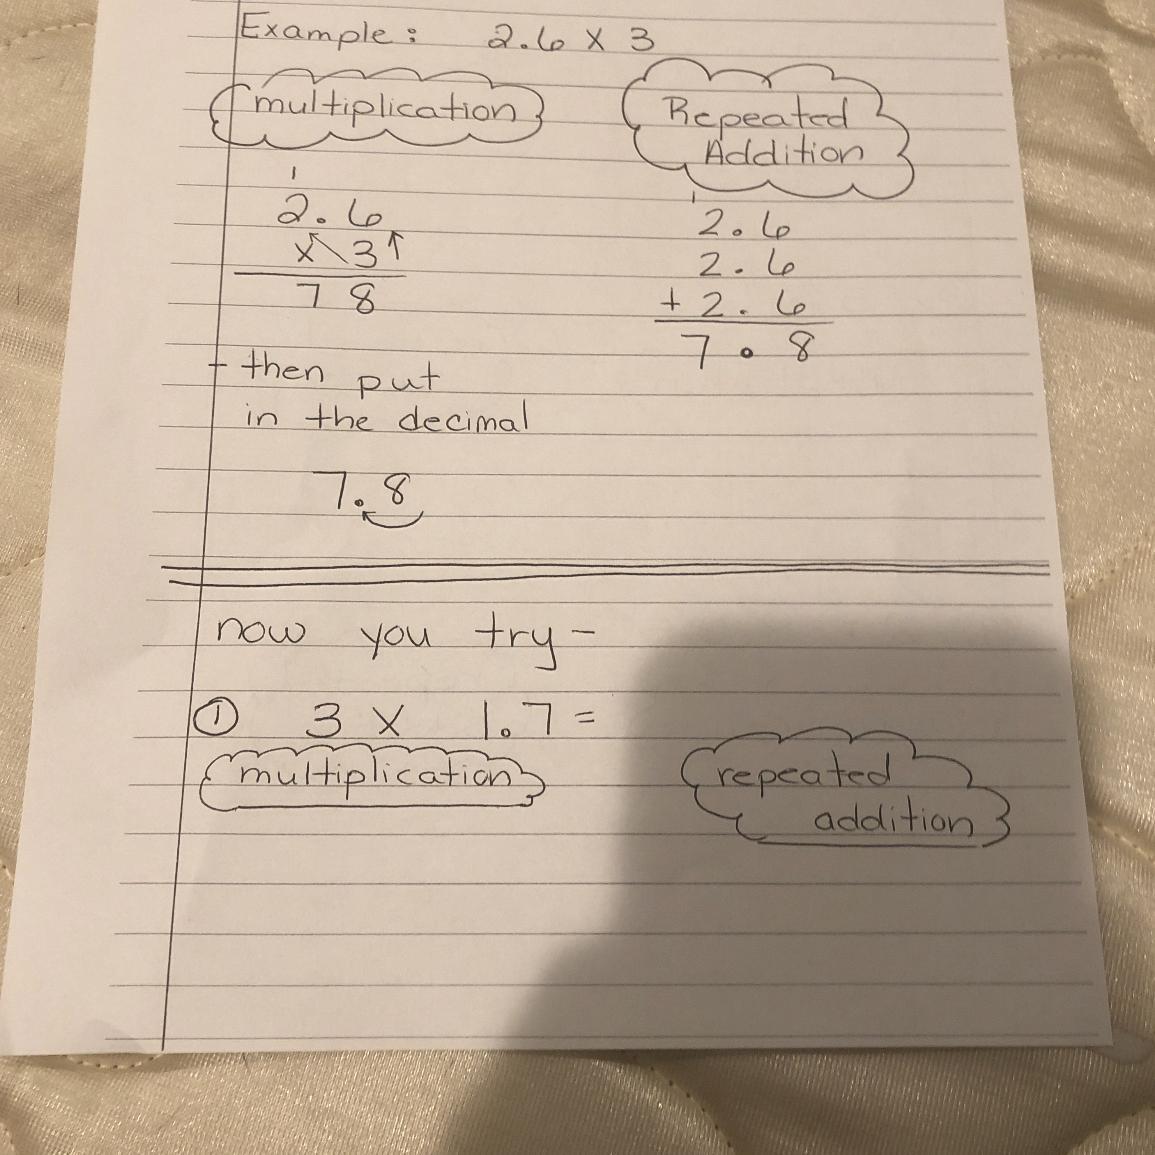 Example: 2.6 X 3
multiplication
Repeated
Addition
1
2.6
x 3
7 8
1
2.6
2.6
+ 2.6
7.8
then put
in the decimal
7.8
now you try-
① 3 X 1.7 =
multiplication
repeated
addition